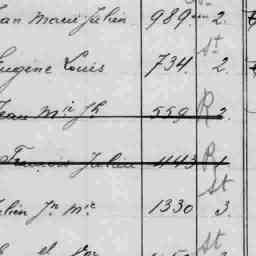 Jean Marie Julien 989 2.
Eugène Louis 734. St 2.
Jean Mie Jh 559 R 2.
François Julien 443 R 1
Julien Jn Mie 1330 St 3.
St